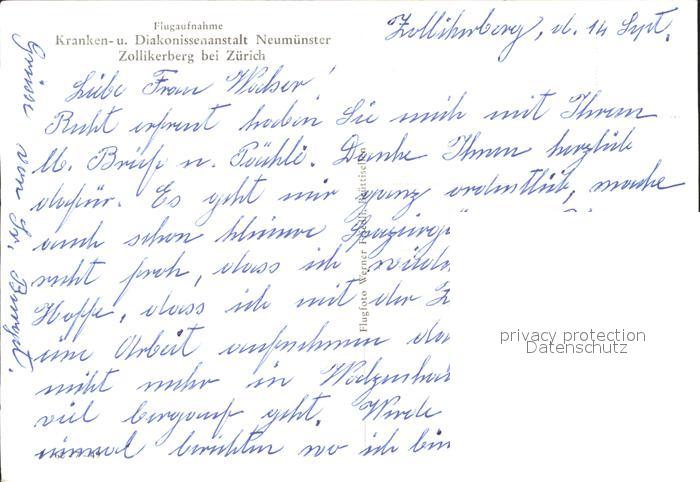 Flugaufnahme
Kranken- u. Diakonissenanstalt Neumünster
Zollikerberg bei Zürich
Zollikerberg, d. 14 Sept.
Liebe Frau Walser!
Recht erfreut haben Sie mich mit Ihrem
lb. Brief u. Päckli. Danke Ihnen herzlich
dafür. Es geht mir ganz ordentlich, mache
auch schon kleinere
recht froh, dass ich
Hoffe, dass ich mit der
eine Arbeit aufnehmen
nicht mehr in
viel bergauf geht. Werde
einmal berichten wo ich bin
Grüsse von Sr.
Flugfoto Werner
privacy protection
Datenschutz